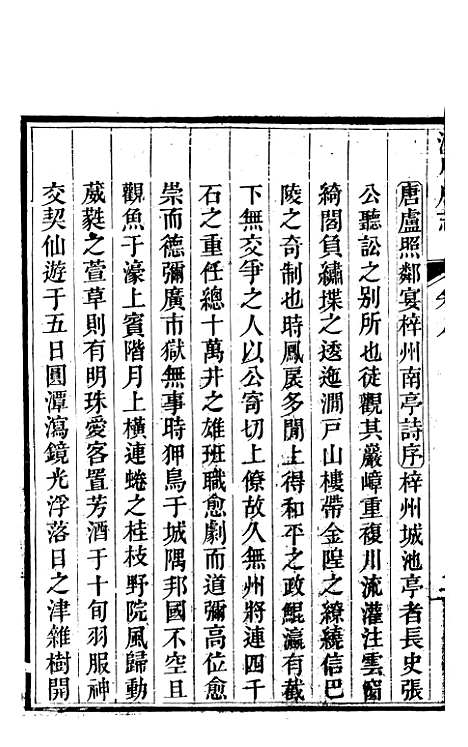 唐盧照鄰宴梓州南亭詩序梓州城池亭者長史張
公聽訟之别所也徒觀其巖嶂重複川流灌注雲窗
綺閣負繡堞之逶迤澗戸山樓帶金隍之繚繞信巴
陵之奇制也時鳳扆多閒上得和平之政鯤瀛有截
下無交爭之人以公寄切上僚故久無州將連四千
石之重任總十萬井之雄班職愈劇而道彌高位愈
崇而德彌廣市獄無事時狎鳥于城隅邦國不空且
觀魚于濠上賓階月上橫連蜷之桂枝野院風歸動
葳蕤之萱草則有明珠愛客置芳酒于十旬羽服神
交契仙遊于五日圓潭瀉鏡光浮落日之津雜樹開